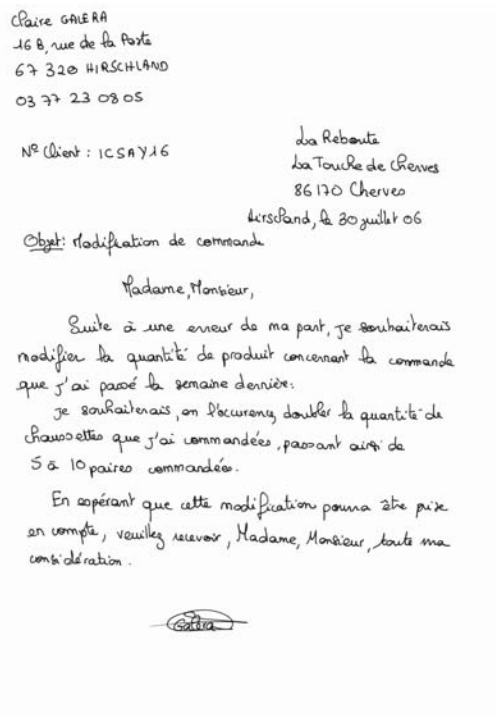 Claire GALERA
16 B, rue de la Poste
67 320 HIRSCHLAND
03 77 23 08 05
N° Client : ICSAY16
La Reboute
La Touche de Cherves
86170 Cherves
Hirschland, le 30 juillet 06
Objet : Modification de commande
Madame, Monsieur,
Suite à une erreur de ma part, je souhaiterais
modifier la quantité de produit concernant la commande
que j'ai passé la semaine dernière.
Je souhaiterais, en l'occurence, doubler la quantité de
chaussettes que j'ai commandées, passant ainsi de
5 à 10 paires commandées.
En espérant que cette modification pourra être prise
en compte, veuillez recevoir, Madame, Monsieur, toute ma
considération.
Galera